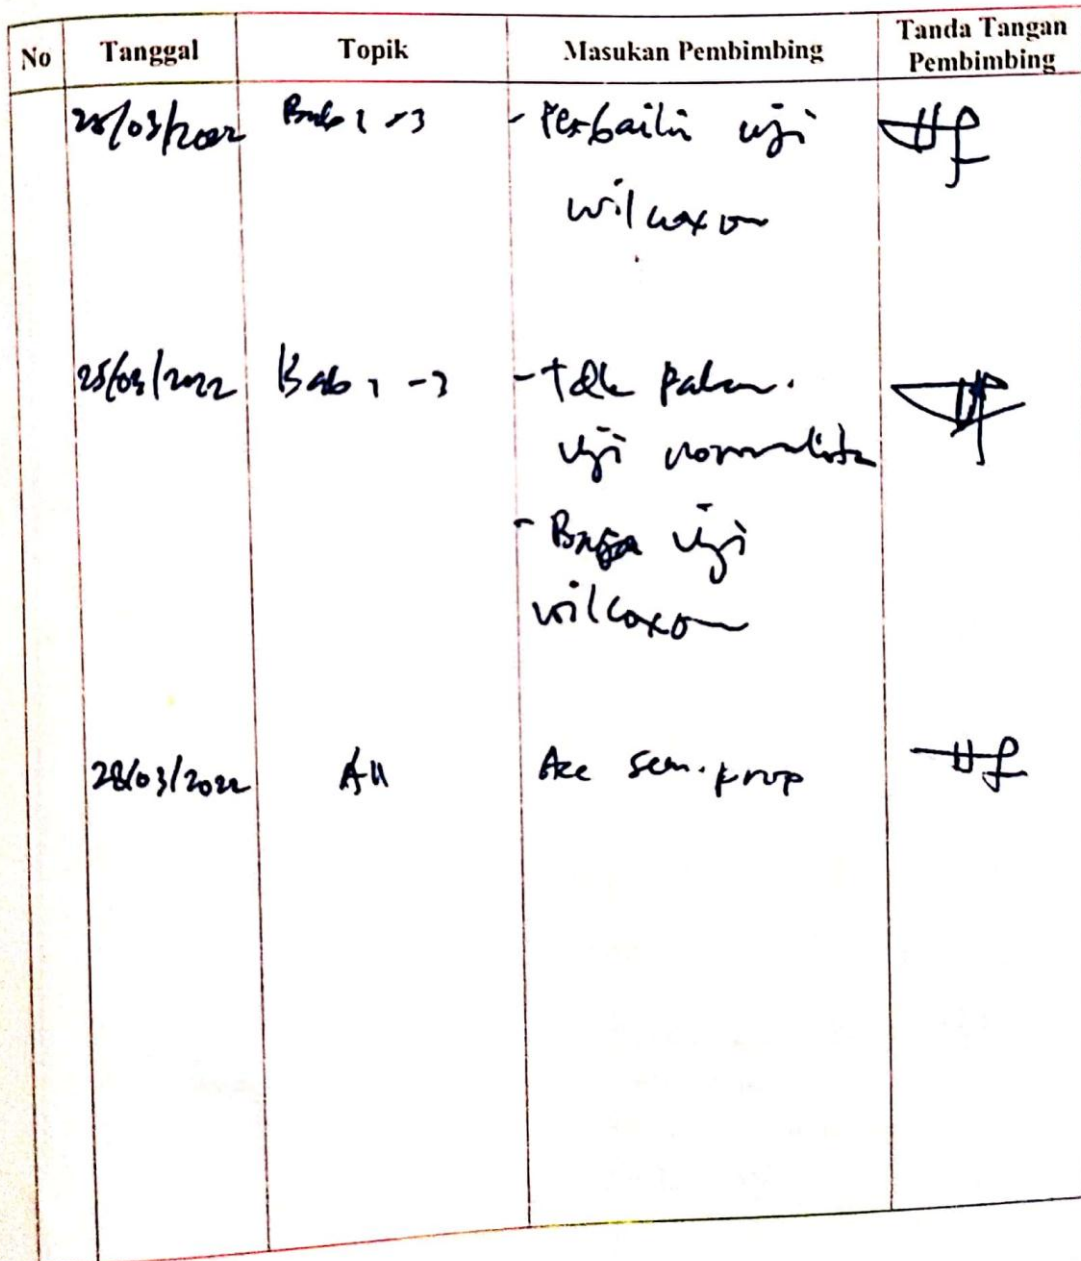 No Tanggal Topik Masukan Pembimbing Tanda Tangan Pembimbing
/03/2022 Bab 1 -3 - Perbaiki uji
wilcoxon
25/03/2022 Bab 1 -3 - Tdk
uji normalitas
- uji
wilcoxon
28/03/2022 All Acc sem. prop